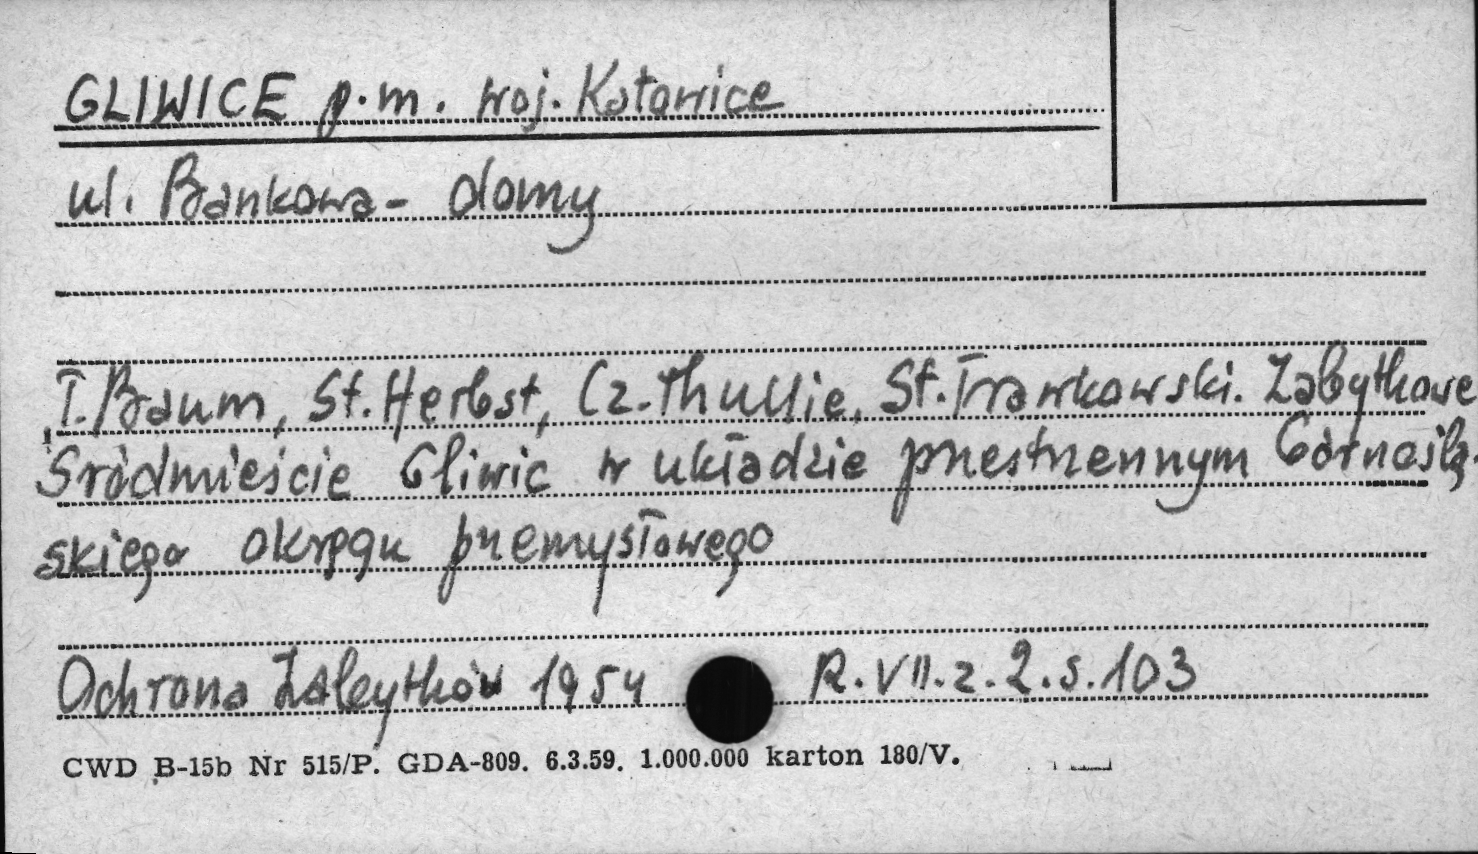 GLIWICE p.m. woj. Katowice
ul. Bankowa - domy
T. Baum, St. Herbst, Cz. Thullie, St. Trawkowski. Zabytkowe
Śródmieście Gliwic w układzie przestrzennym Górnoślą-
skiego okręgu przemysłowego
Ochrona Zabytków 1954 R. VII. z. 2. s. 103
CWD B-15b Nr 515/P. GDA-809. 6.3.59. 1.000.000 karton 180/V.